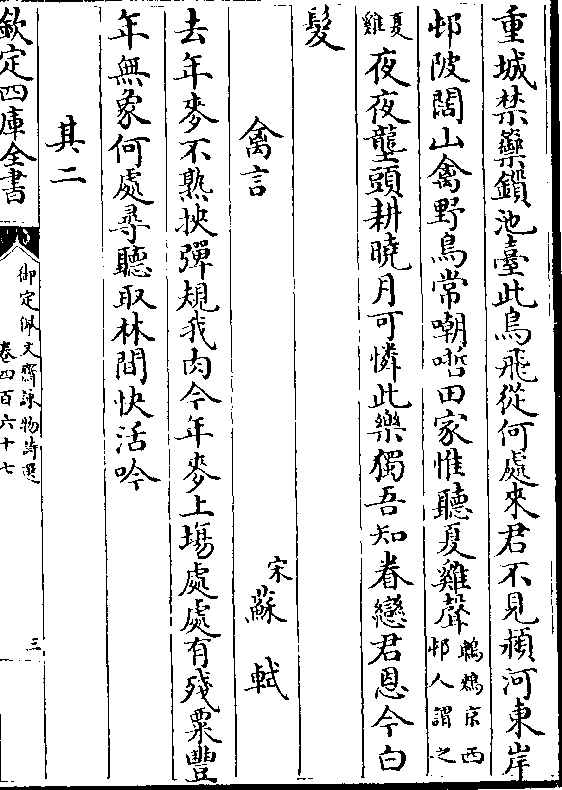 重城禁籞鎖池臺此鳥飛從何處來君不見潁河東岸
邨陂闊山禽野鳥常嘲哳田家惟聽夏雞聲鵯鶋京西邨人謂之
夏雞夜夜壟頭耕曉月可憐此樂獨吾知眷戀君恩今白
髮
禽言
宋蘇軾
去年麥不熟挾彈規我肉今年麥上場處處有殘粟豐
年無象何處尋聽取林間快活吟
其二
欽定四庫全書
御定佩文齋詠物詩選
卷四百六十七
三